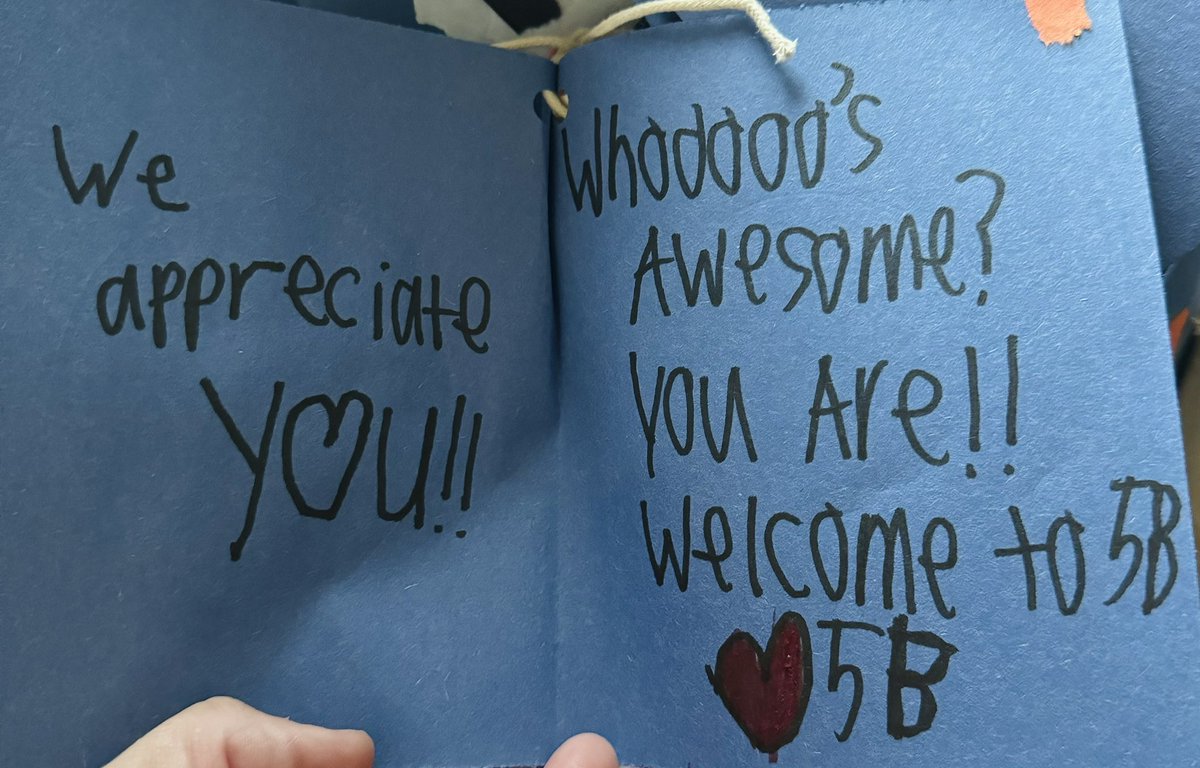 We
appreciate
YOU!!
Whoooooo's
Awesome?
You Are!!
Welcome to 5B
♥5B